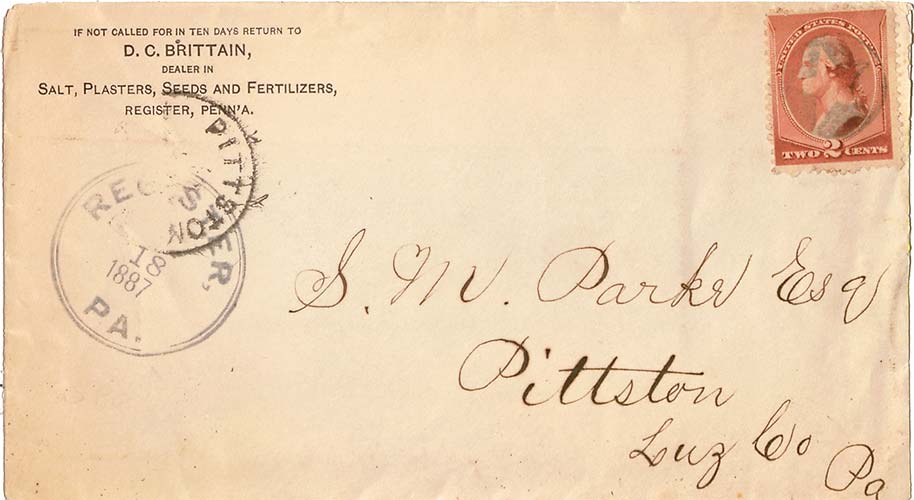 IF NOT CALLED FOR IN TEN DAYS RETURN TO
D. C. BRITTAIN,
DEALER IN
SALT, PLASTERS, SEEDS AND FERTILIZERS,
REGISTER, PENN'A.
UNITED STATES POSTAGE
TWO 2 CENTS
PITTSTON
REGISTER,
18
1887
PA.
S. M. Parke Esq
Pittston
Luz Co
Pa